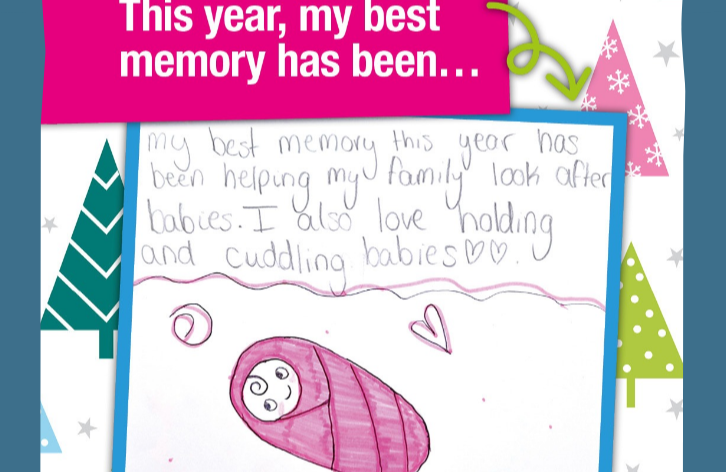 This year, my best
memory has been...
my best memory this year has
been helping my family look after
babies. I also love holding
and cuddling babies♡♡.